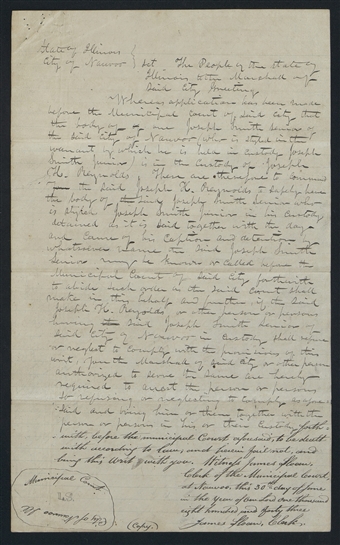 State of Illinois
City of Nauvoo } Sct. The People of the State of
Illinois to the Marshal of
Said City Greeting
Whereas application has been made
before the Municipal Court of Said City that
the body of one Joseph Smith Senior of
the Said City of Nauvoo who is styled in the
warrant by which he is held in Custody Joseph
Smith Junior, is in the Custody of Joseph
H. Reynolds. These are therefore to command
the Said Joseph H. Reynolds to Safely have
the body of Said Joseph Smith Senior who
is styled Joseph Smith Junior in his Custody
detained as it is said together with the day
and Cause of his Caption and detention by
whatsoever Name the Said Joseph Smith
Senior may be known or Called before the
Municipal Court of Said City forthwith
to abide Such order as the Said Court Shall
make in this behalf and further if the Said
Joseph H. Reynolds, or other person or persons
having Said Joseph Smith Senior of
Said City of Nauvoo in Custody Shall refuse
or neglect to Comply with the provisions of this
writ, you the Marshal of Said City or other person
authorized to serve the same are hereby
required to arrest the person or persons
So refusing or neglecting to Comply as afore
Said and bring him or them together with the
person or persons in his or their Custody forth-
with, before the municipal Court aforesaid, to be dealt
with according to law, and herein fail not, and
bring this Writ with you. Witness James Sloan,
Clerk of the Municipal Court,
at Nauvoo, this 30th day of June
in the year of our Lord one thousand
eight hundred and forty three
James Sloan, Clerk.
Municipal Court
City of Nauvoo Ill.
(Copy.)